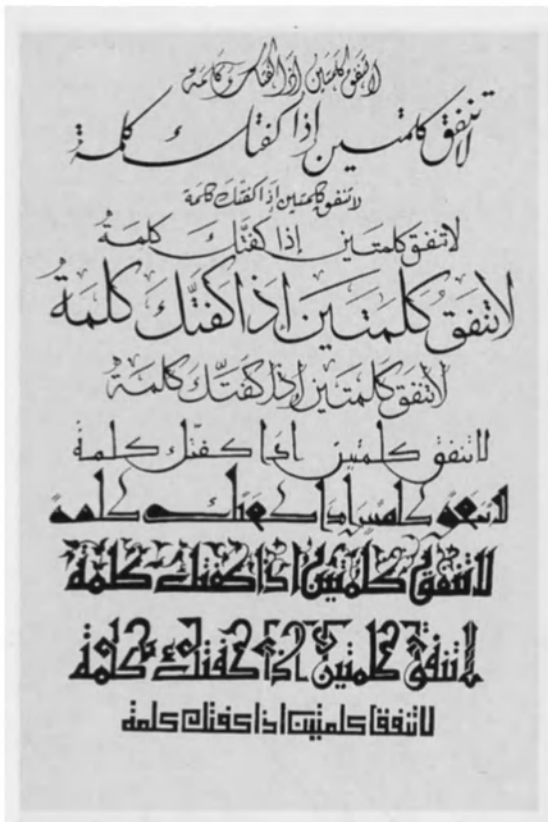 لا تنفق كلمتين إذا كفتك كلمة
لا تنفق كلمتين إذا كفتك كلمة
لا تنفق كلمتين إذا كفتك كلمة
لا تنفق كلمتين إذا كفتّك كلمةٌ
لا تنفَق كَلمَتَين اذَا كَفتَّكَ كلمَةٌ
لا تنفَق كَلمَتَين إذا كَفَتّكَ كَلمَةٌ
لا تنفق كلمتين اذا كفتّك كلمة
لا تنفق كلمتين اذا كفتك كلمة
لا تنفق كلمتين اذا كفتك كلمة
لا تنفق كلمتين اذا كفتك كلمة
لا تنفق كلمتين اذا كفتك كلمة